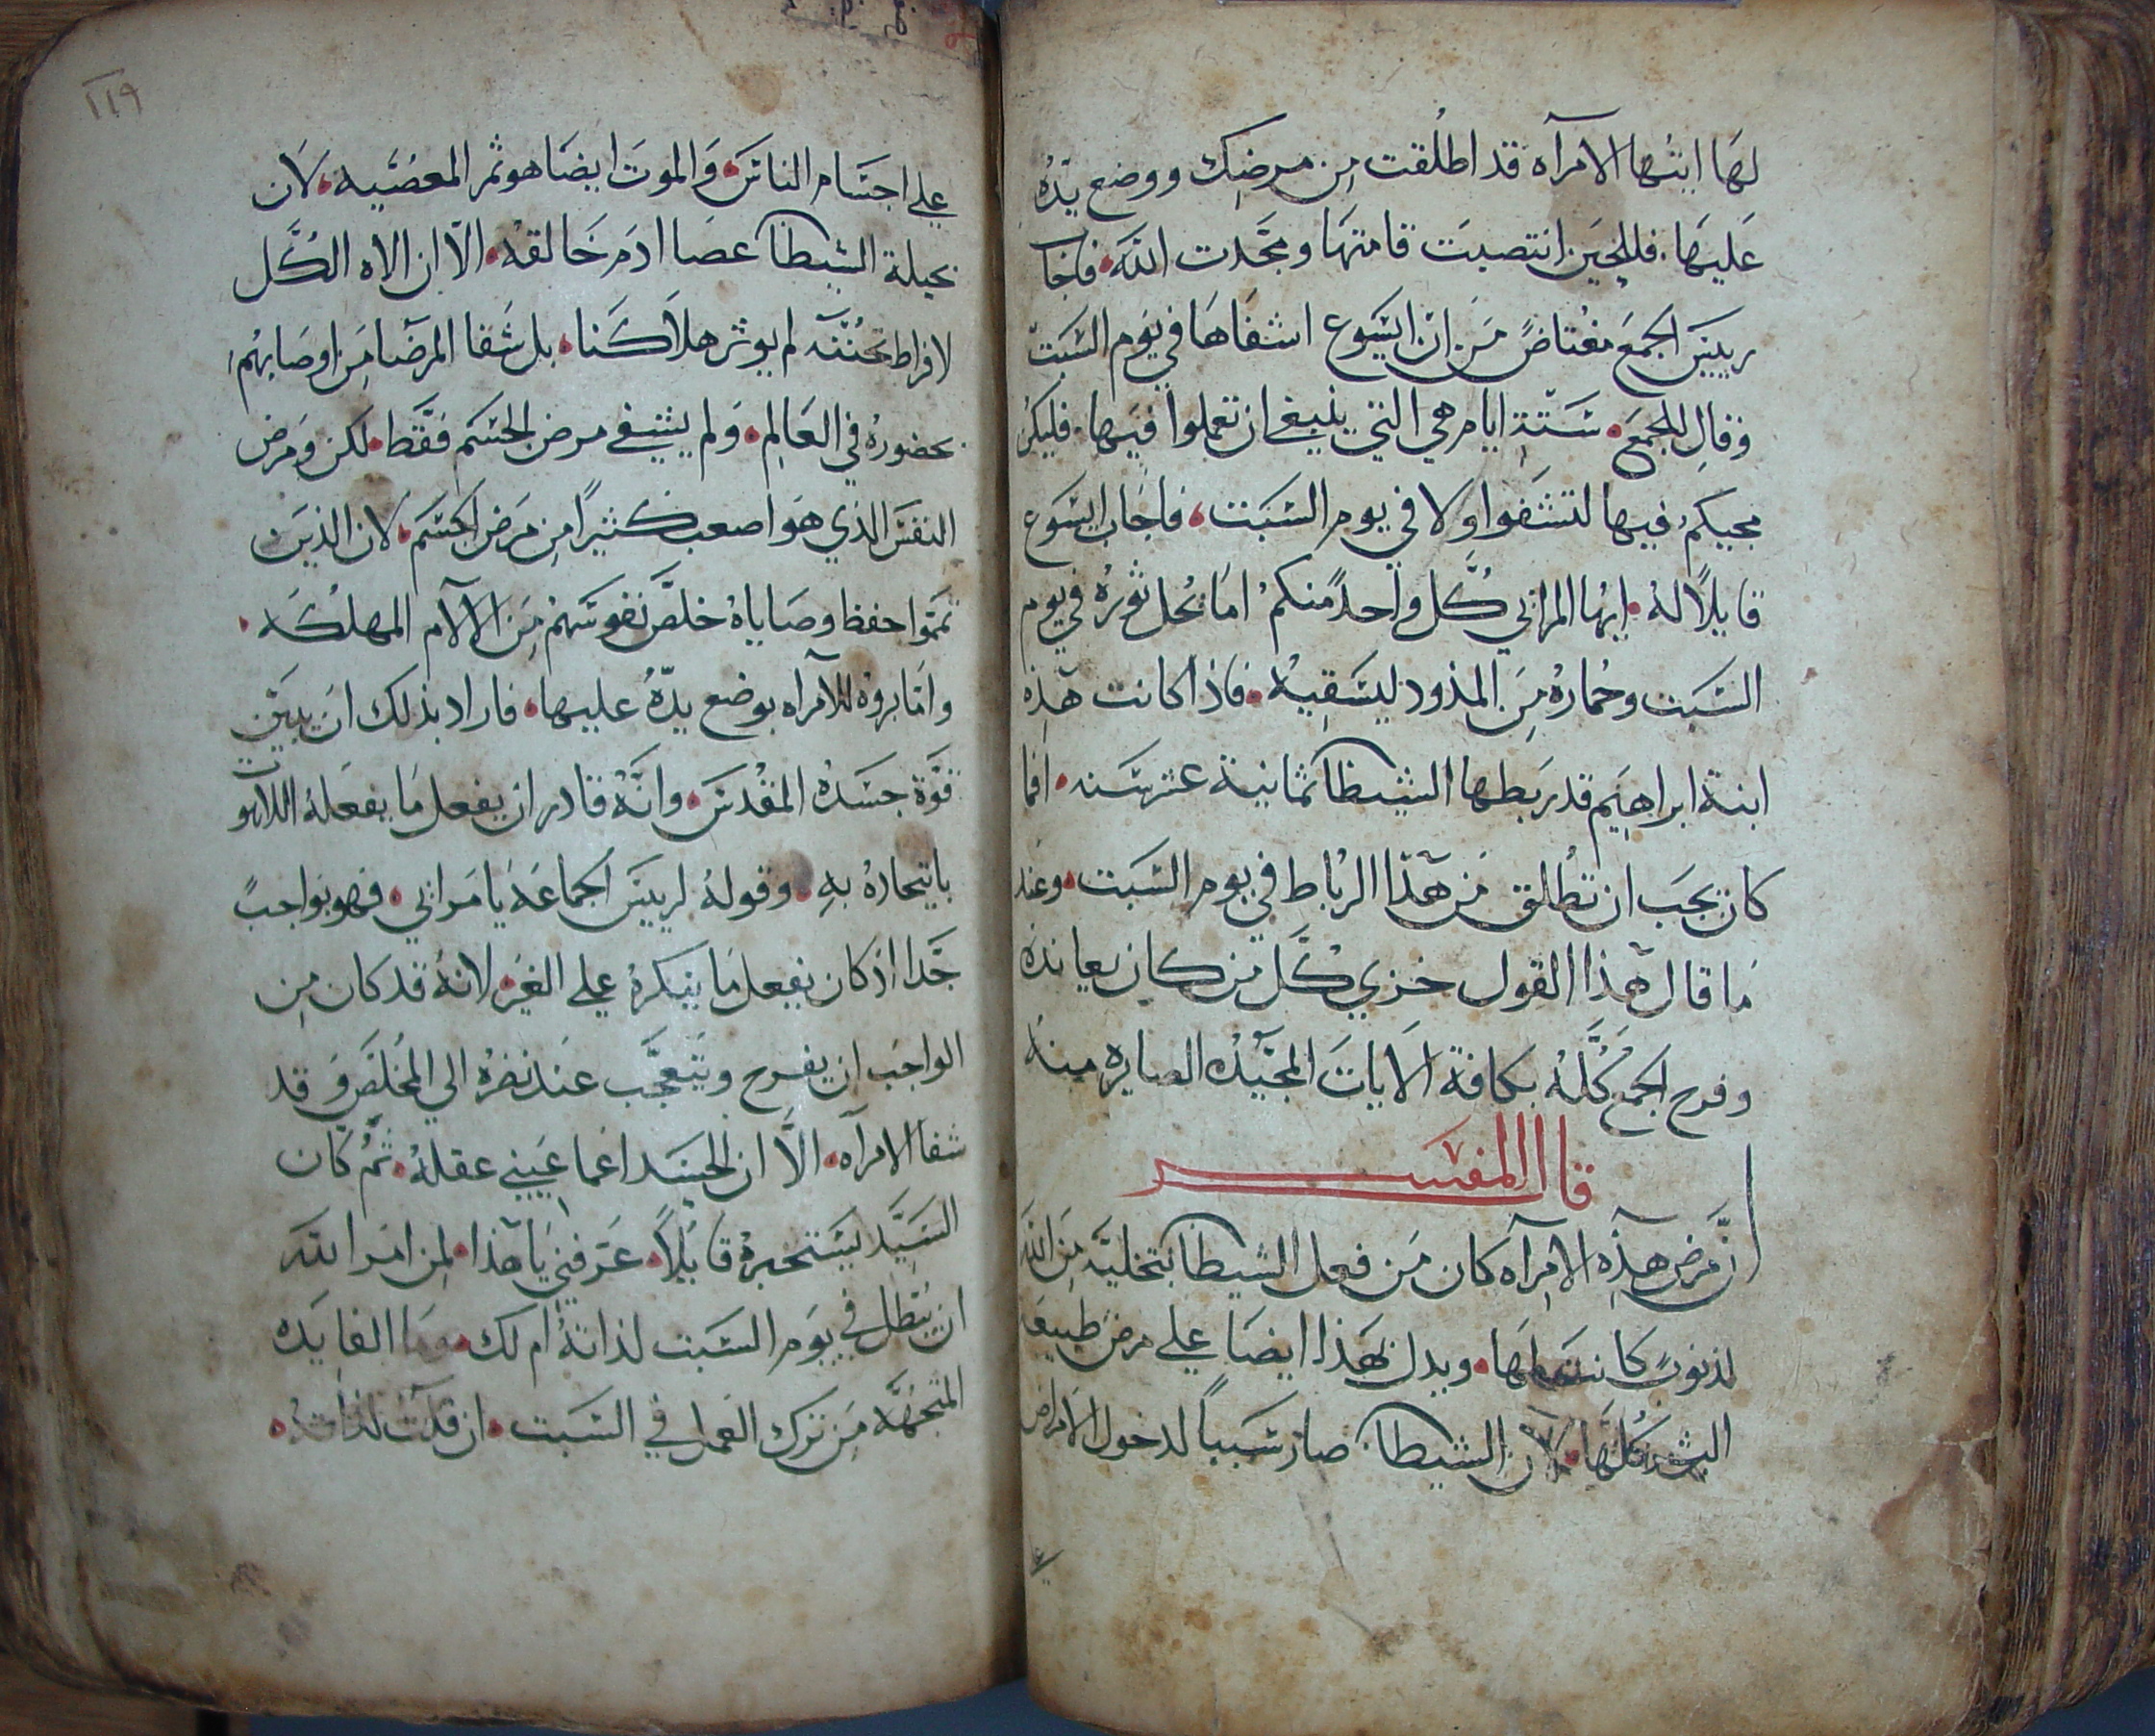 لها ايتها الامرآه قد اطلقت من مرضك ووضع يدهُ
عليها. فللحين انتصبت قامتها ومجدت الله. فاجاب
رييس الجمع مغتاضً من ان ايسوع اشفاها في يوم السبت
وقال للجمع. ستة ايام هي التي ينبغي ان تعملوا فيها. فليكن
مجيكم فيها لتشفوا ولا في يوم السبت. فاجاب ايسوع
قايلاً لهُ. ايها المرائي كل واحدً منكم اما يحل ثورهُ في يوم
السبت وحمارهُ من المذود ليسقيهُ. فاذا كانت هذه
ابنة ابراهيم قد ربطها الشيطان ثمانية عشر سنه. افما
كان يجب ان تطلق من هذا الرباط في يوم السبت. وعند
ما قال هذا القول خزي كل من كان يعاندهُ
وفرح الجمع كله بكافة الايات المجيده الصايره منهُ
قال المفسر
ان مرض هذه الامرآه كان من فعل الشيطان بتخلية من الله
لذنوب كانت لها. ويدل بهذا ايضا على مرض طبيعة
البشر كلها. لان الشيطان صار سبباً لدخول الامراض
١١٩
على اجسام الناس. والموت ايضا هو ثمر المعصيه. لان
بحيلة الشيطان عصا ادم خالقه. الا ان الاه الكل
لافراط تحننه لم يوثر هلاكنا. بل شفا المرضا من اوصابهم
بحضورهُ في العالم. ولم يشفي مرض الجسم فقط. لكن ومرض
النفس الذي هو اصعب كثيراً من مرض الجسم. لان الذين
تمموا حفظ وصاياهُ خلص نفوسهم من الالام المهلكه.
واما بروهُ للامرآه بوضع يدهُ عليها. فاراد بذلك ان يبين
قوة جسدهُ المقدس. وانهُ قادر ان يفعل ما يفعلهُ اللاهوت
باتحادهُ به. وقولهُ لرييس الجماعة يا مرائي. فهو بواجبً
جدا اذ كان يفعل ما ينكرهُ على الغير. لانهُ قد كان من
الواجب ان يفرح ويتعجب عند نضرهُ الي المخلص وقد
شفا الامرآه. الا ان الحسد اعما عيني عقلهُ. ثم كان
السيد يستخبرهُ قايلاً. عرفني يا هذا. لمن امر الله
ان يبطل في يوم السبت لذاتهُ ام لك. وما الفايده
المتجهه من ترك العمل في السبت. ان قلت لذاتهُ.